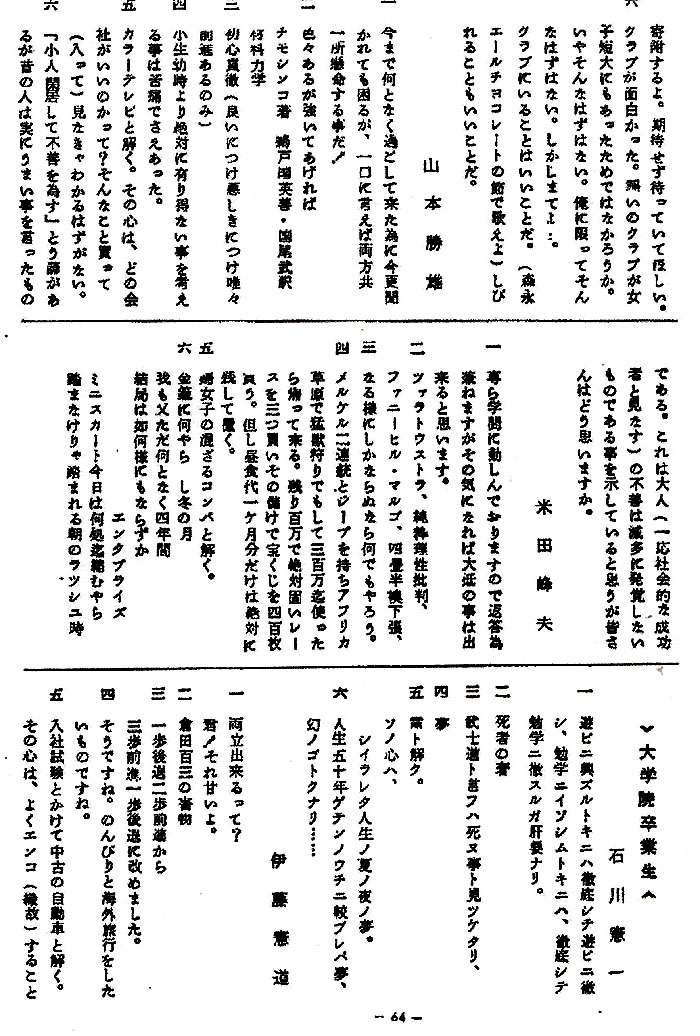 寄附するよ。期待せず待っていてほしい。
六
クラブが面白かった。深いのクラブが女
子短大にもあったためではなかろうか。
いやそんなはずはない。俺に限ってそん
なはずはない。しかしまてよ…。
クラブにいることはいいことだ。(森永
エールチョコレートの節で歌えよ)しび
れることもいいことだ。
山本勝雄
一
今まで何となく過ごして来た為に今更聞
かれても困るが、一口に言えば両方共
一所懸命する事だ!
二
色々あるが強いてあげれば
チモシンコ著 鵜戸口英善・国尾武訳
材料力学
三
初心貫徹(良いにつけ悪しきにつけ唯々
前進あるのみ)
四
小生幼時より絶対に有り得ない事を考え
る事は苦痛でさえあった。
五
カラーテレビと解く。その心は、どの会
社がいいのかって?そんなこと買って
(入って)見なきゃわかるはずがない。
六
「小人閑居して不善を為す」とう諺があ
るが昔の人は実にうまい事を言ったもの
である。これは大人(一応社会的な成功
者と見なす)の不善は滅多に発覚しない
ものである事を示していると思うが皆さ
んはどう思いますか。
米田峰夫
一
専ら学問に勤しんでおりますので返答為
兼ねますがその気になれば大抵の事は出
来ると思います。
二
ツァラトウストラ、純粋理性批判、
ファニーヒル・マルゴ、四畳半襖下張、
三
なる様にしかならぬなら何でもやろう。
四
メルケル二連銃とジープを持ちアフリカ
草原で猛獣狩りでもして三百万迄使った
ら帰って来る。残り百万で絶対固いレー
スを三つ買いその儲けで宝くじを四百枚
買う。但し昼食代一ケ月分だけは絶対に
残して置く。
五
婦女子の混ざるコンパと解く。
六
金籠に何やら し冬の月
我も又ただ何となく四年間
結局は如何様にもならずか
エンタプライズ
ミニスカート今日は何処迄縮むやら
踏まなけりゃ踏まれる朝のラッシュ時
>大学院卒業生<
石川憲一
一
遊ビニ興ズルトキニハ徹底シテ遊ビニ徹
シ、勉学ニイソシムトキニハ、徹底シテ
勉学ニ徹スルガ肝要ナリ。
二
死者の奢
三
武士道ト言フハ死ヌ事ト見ツケタリ、
四
夢
五
霞ト解ク。
ソノ心ハ、
シイラレタ人生ノ夏ノ夜ノ夢。
六
人生五十年ゲテンノウチニ較ブレバ夢、
幻ノゴトクナリ……
伊藤憲道
一
両立出来るって?
君!それ甘いよ。
二
倉田百三の書物
三
一歩後退二歩前進から
三歩前進一歩後退に改めました。
四
そうですね。のんびりと海外旅行をした
いものですね。
五
入社試験とかけて中古の自動車と解く。
その心は、よくエンコ(縁故)すること
- 64 -